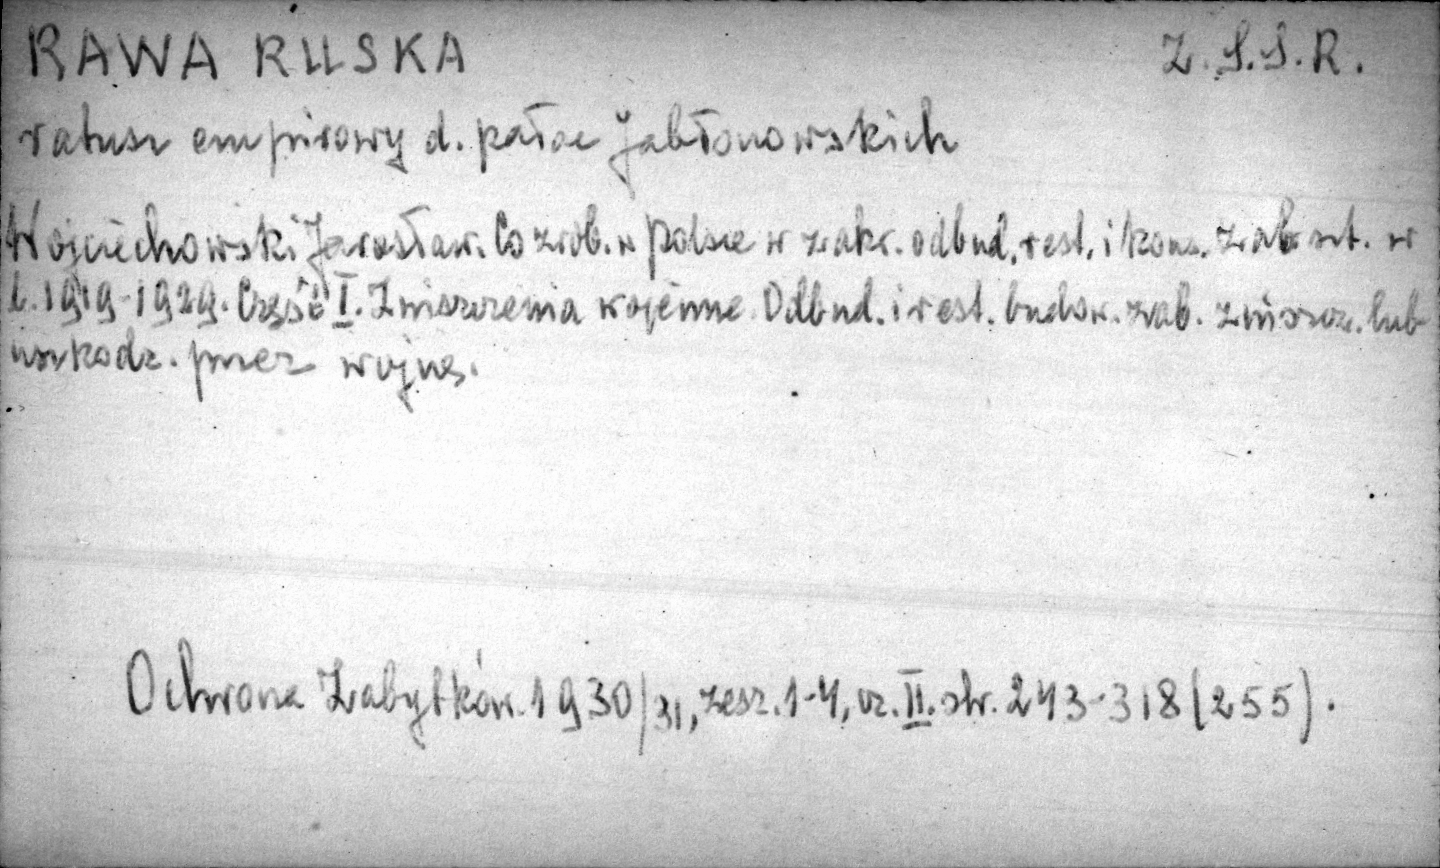 RAWA RUSKA Z.S.S.R.
ratusz empirowy d. pałac Jabłonowskich
Wojciechowski Jarosław. Co zrob. w Polsce w zakr. odbud. rest. i kons. zab. szt. w
l. 1919-1929. Część I. Zniszczenia wojenne. Odbud. i rest. budow. zab. zniszcz. lub
uszkodz. przez wojnę.
Ochrona Zabytków. 1930/31, zesz. 1-4, cz. II. str. 243-318 (255).